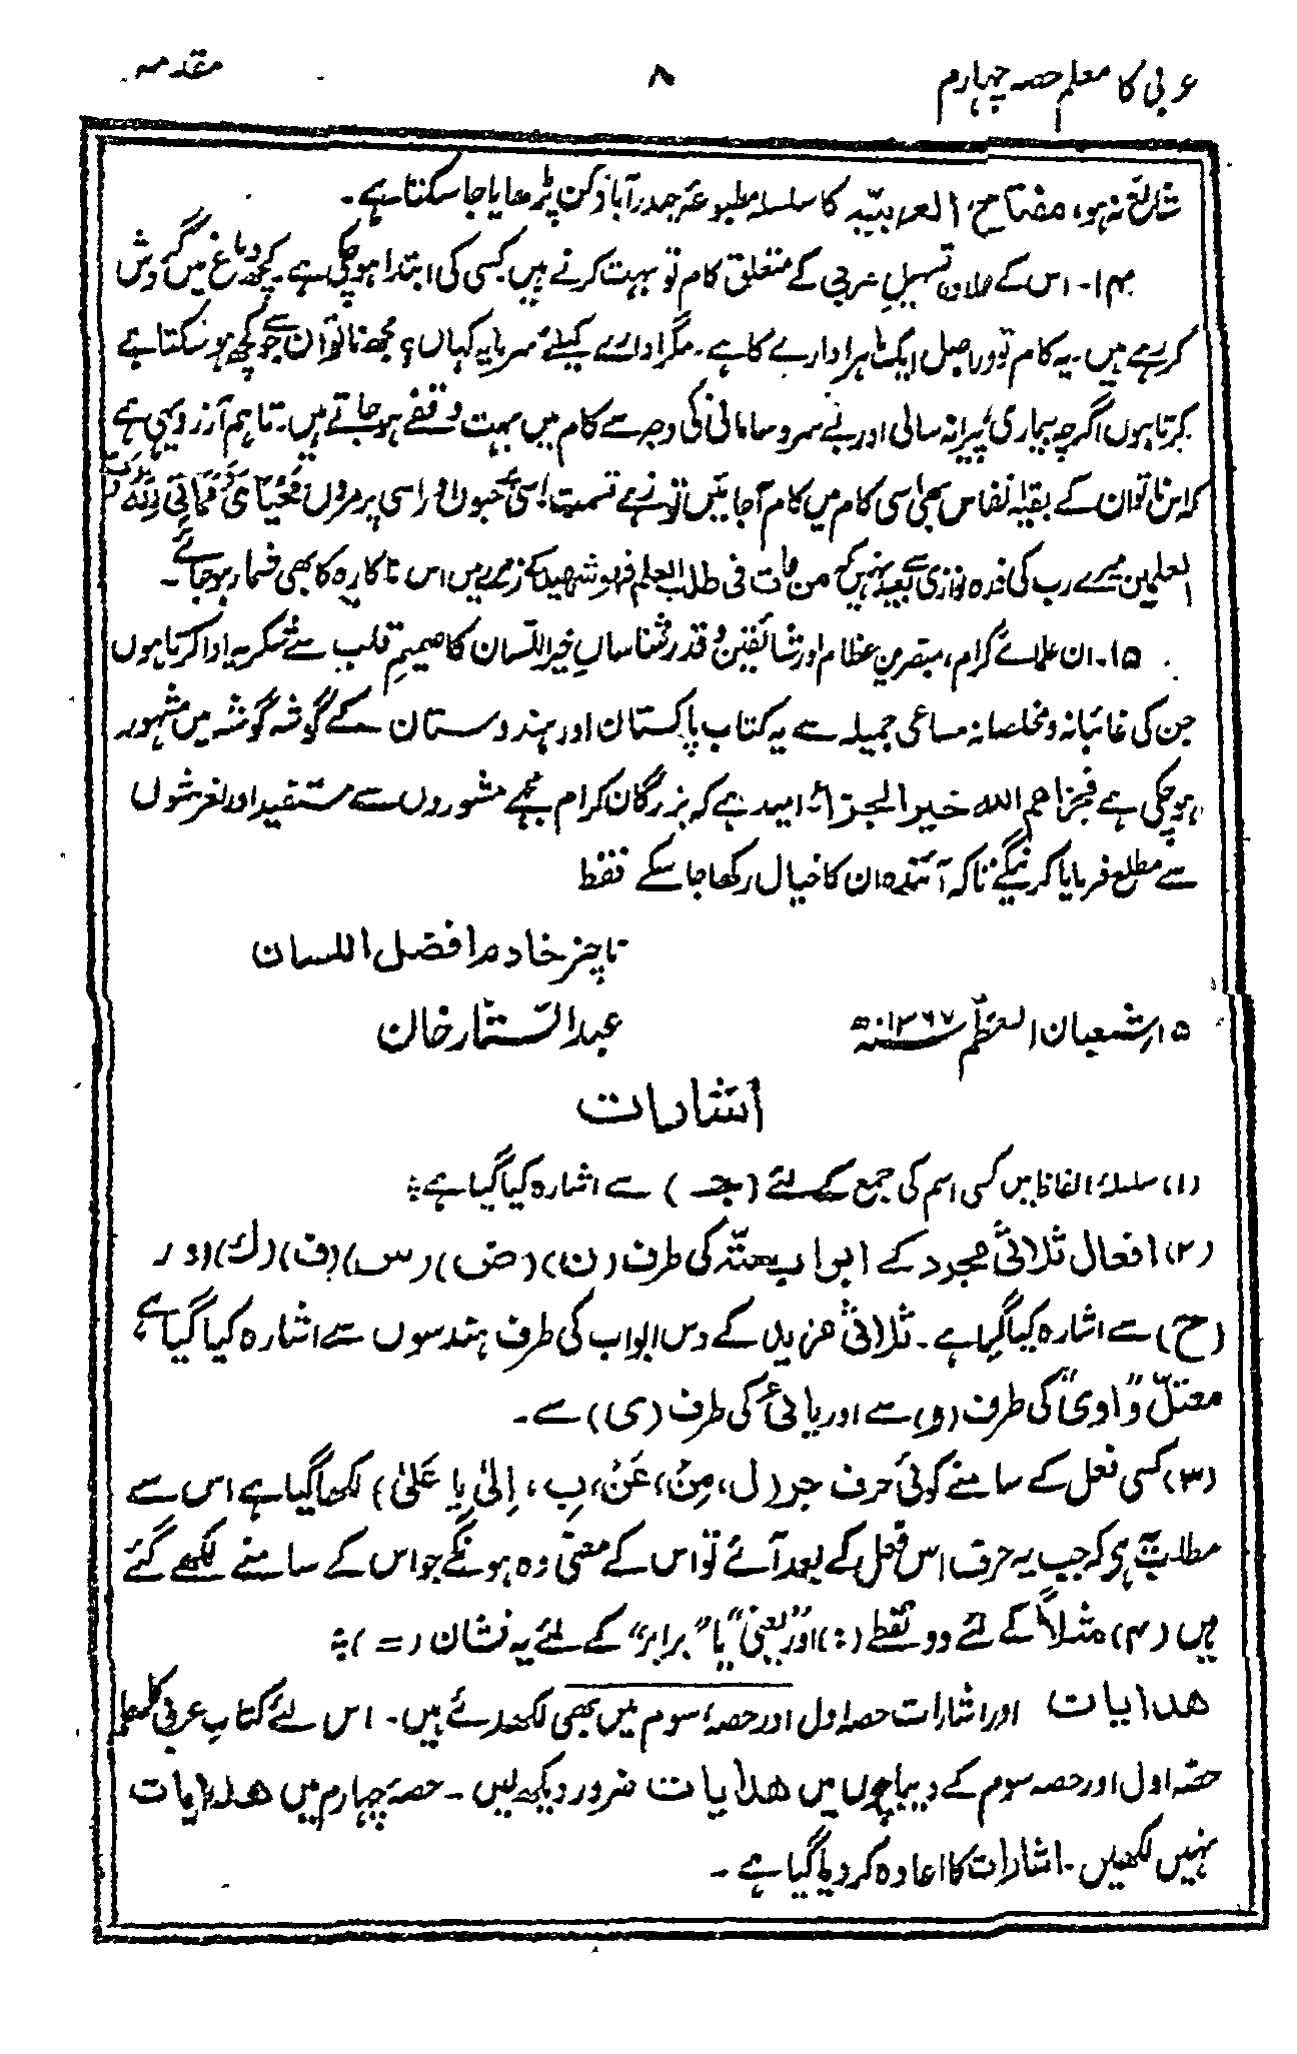 عربی کا معلم حصہ چہارم ۸ مقدمہ
شائع نہ ہو، مفتاح العربیہ کا سلسلہ مطبوعہ حیدرآباد دکن پڑھایا جا سکتا ہے۔
۱۴۔ اس کے علاوہ تسہیلِ عربی کے متعلق کام تو بہت کرنے ہیں کسی کی ابتدا ہو چکی ہے۔ کچھ دماغ میں گردش
کر رہے ہیں۔ یہ کام تو دراصل ایک ماہر ادارے کا ہے۔ مگر ادارے کیلئے سرمایہ کہاں؟ مجھ ناتوان سے جو کچھ ہو سکتا ہے
کرتا ہوں اگرچہ بیماری پیرانہ سالی اور بے سروسامانی کی وجہ سے کام میں بہت وقفے ہو جاتے ہیں۔ تاہم آرزو یہی ہے
کہ اس ناتوان کے بقیہ انفاس بھی اسی کام میں کام آجائیں تو زہے قسمت! اسی میں جیوں اور اسی پر مروں فَمَحْيَايَ وَمَمَاتِي لِلّٰهِ رَبِّ
العلمین میرے رب کی ذرہ نوازی سے بعید نہیں کہ من مات فی طلب العلم فهو شهيد کے زمرے میں اس ناکارہ کا بھی شمار ہو جائے۔
۱۵۔ ان علمائے کرام، مبصرین عظام اور شائقین و قدر شناسانِ خیر اللسان کا صمیمِ قلب سے شکریہ ادا کرتا ہوں
جن کی غائبانہ و مخلصانہ مساعی جمیلہ سے یہ کتاب پاکستان اور ہندوستان کے گوشہ گوشہ میں مشہور
ہو چکی ہے فجزاھم اللہ خیر الجزاء امید ہے کہ بزرگان کرام مجھے مشوروں سے مستفید اور لغزشوں
سے مطلع فرمایا کرینگے تاکہ آئندہ ان کا خیال رکھا جا سکے فقط
ناچیز خادم افضل اللسان
۱۵ شعبان المعظم سنہ ۱۳۶۷ھ عبد الستّار خان
اشارات
(۱) سلسلۂ الفاظ میں کسی اسم کی جمع کے لئے (جـ) سے اشارہ کیا گیا ہے ؛
(۲) افعال ثلاثی مجرد کے ابواب ستّہ کی طرف (ن) (ض) (س) (ف) (ك) اور
(ح) سے اشارہ کیا گیا ہے۔ ثلاثی مزید کے دس ابواب کی طرف ہندسوں سے اشارہ کیا گیا ہے
معتلّ واوی کی طرف (و) سے اور یائی کی طرف (ی) سے۔
(۳) کسی فعل کے سامنے کوئی حرف جر (لِ، مِنْ، عَنْ، بِ، اِلٰی یا عَلیٰ) لکھا گیا ہے اس سے
مطلب یہ ہے کہ جب یہ حرف اس فعل کے بعد آئے تو اس کے معنی وہ ہونگے جو اس کے سامنے لکھے گئے
ہیں (۴) مثلاً کے لئے دو نقطے (:) اور "یعنی" یا "برابر" کے لئے یہ نشان (=) ؛
ھدایات اور اشارات حصہ اول اور حصۂ سوم میں بھی لکھدئے ہیں۔ اس لئے کتاب عربی کا معلم
حصّہ اول اور حصہ سوم کے دیباچوں میں ھدایات ضرور دیکھ لیں۔ حصہ چہارم میں ھدایات
نہیں لکھیں۔ اشارات کا اعادہ کر دیا گیا ہے۔